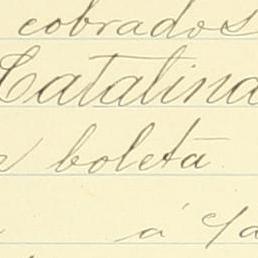 cobrados
Catalina
boleta
á